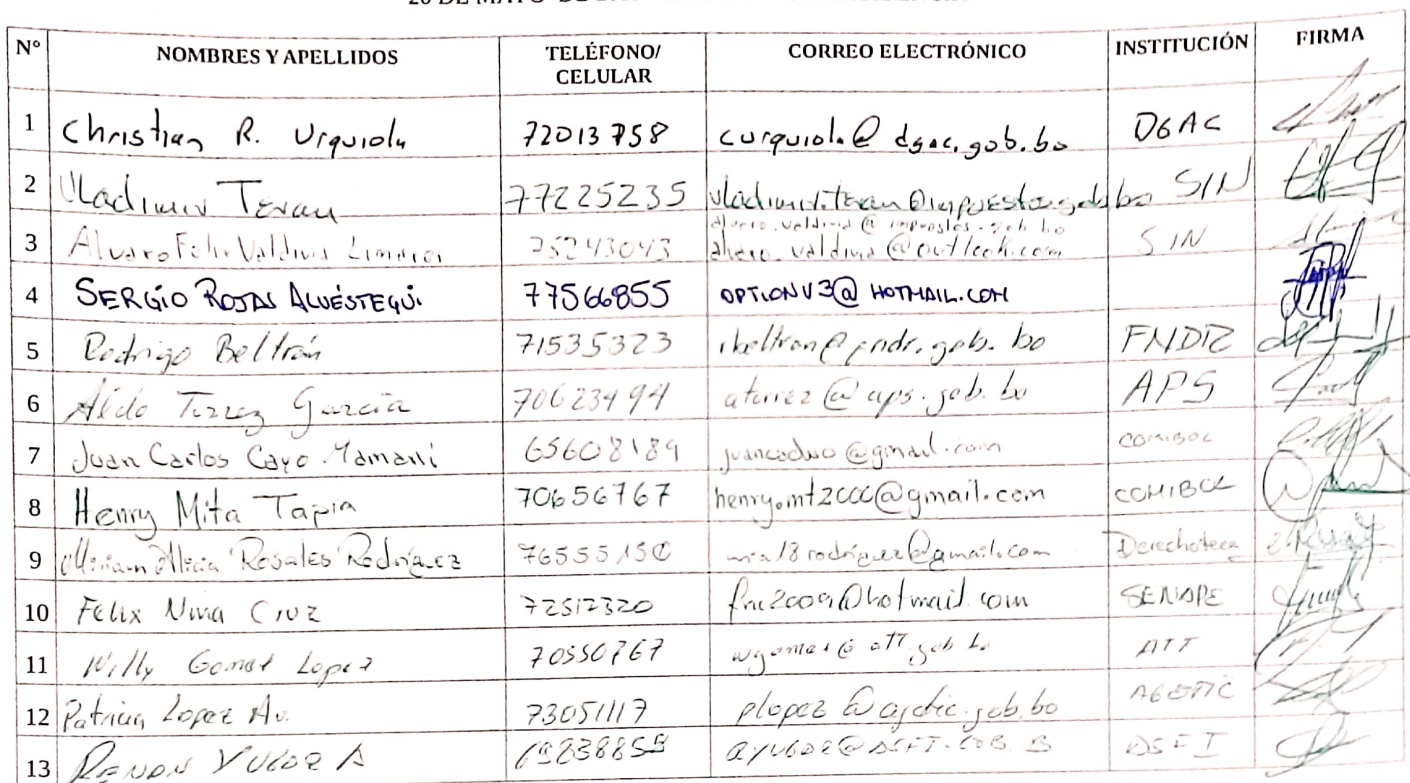 20 DE MAYO DE
N° NOMBRES Y APELLIDOS TELÉFONO/ CELULAR CORREO ELECTRÓNICO INSTITUCIÓN FIRMA
1 Christian R. Urquiola 72013758 curquiola@dgac.gob.bo DGAC
2 Vladimir Teran 77225235 vladimir.teran@impuestos.gob.bo SIN
alvaro.valdivia@impuestos.gob.bo
3 Alvaro Felix Valdivia 75243043 alvaro.valdivia@outlook.com SIN
4 SERGIO ROJAS ALUÉSTEGUI 77566855 OPTIONV3@HOTMAIL.COM
5 Rodrigo Beltrán 71535323 rbeltran@fndr.gob.bo FNDR
6 Aldo Torrez García 70623494 atorrez@aps.gob.bo APS
7 Juan Carlos Cayo Mamani 65608189 @gmail.com COMIBOL
8 Henry Mita Tapia 70656767 henry.mt2000@gmail.com COMIBOL
9 Miriam Alicia Rosales Rodríguez 76555150 mia18rodriguez@gmail.com Derechoteca
10 Felix Nina Cruz 72512320 fnc2009@hotmail.com SENAPE
11 Willy Gomez Lopez 70550767 wgomez@att.gob.bo ATT
12 Patricia Lopez Av. 73051117 plopez@agetic.gob.bo AGETIC
13